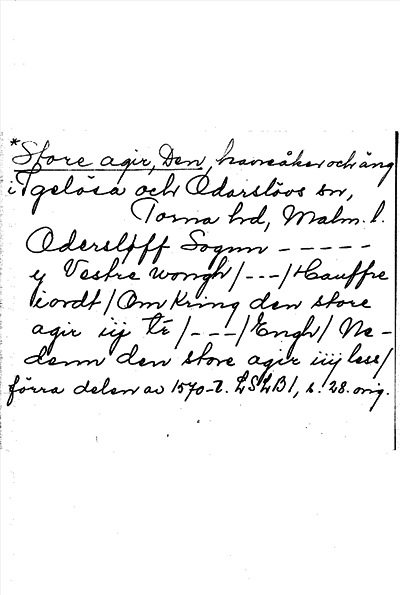 *Store agir, Den, havreåker och äng
i Igelösa och Odarslövs sn,
Torna hd, Malm. l.
Oderslöff Sognn -----
y Vestre wongh/---/Hauffre
iordt/Om Kring den store
agir iij tr/---/Engh/Ne-
denn den store agir iiij less/
förra delen av 1570-t. LSLB1, s. 28. orig.